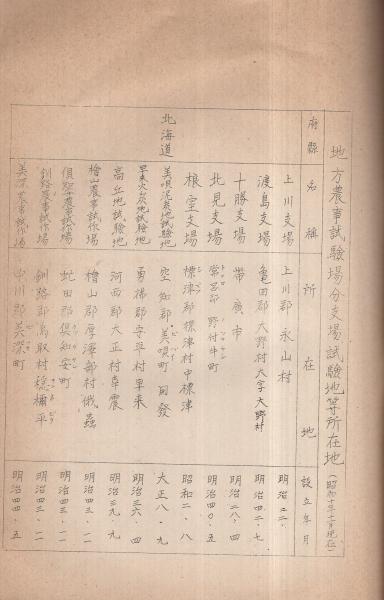 地方農事試験場分支場試験地等所在地（昭和十年十月現在）
府縣 名稱 所在地 設立年月
北海道
上川支場 上川郡永山村 明治二二、
渡島支場 亀田郡大野村大字大野村 明治四二、七
十勝支場 帯廣市 明治二八、四
北見支場 常呂郡野付牛町 明治四〇、五
根室支場 標津郡標津村中標津 昭和二、八
美唄泥炭地試験地 空知郡美唄町開發 大正八、九
早来火山灰地試験地 勇拂郡安平村早来 明治三六、四
高丘地試験地 河西郡大正村幸震 明治三九、九
檜山農事試作場 檜山郡厚澤部村俄蟲 明治四三、一一
倶知安農事試作場 虻田郡倶知安町 明治四三、一一
釧路農事試作場 釧路郡鳥取村穏禰平 明治四三、一一
美深農事試作場 中川郡美深町 明治四四、五